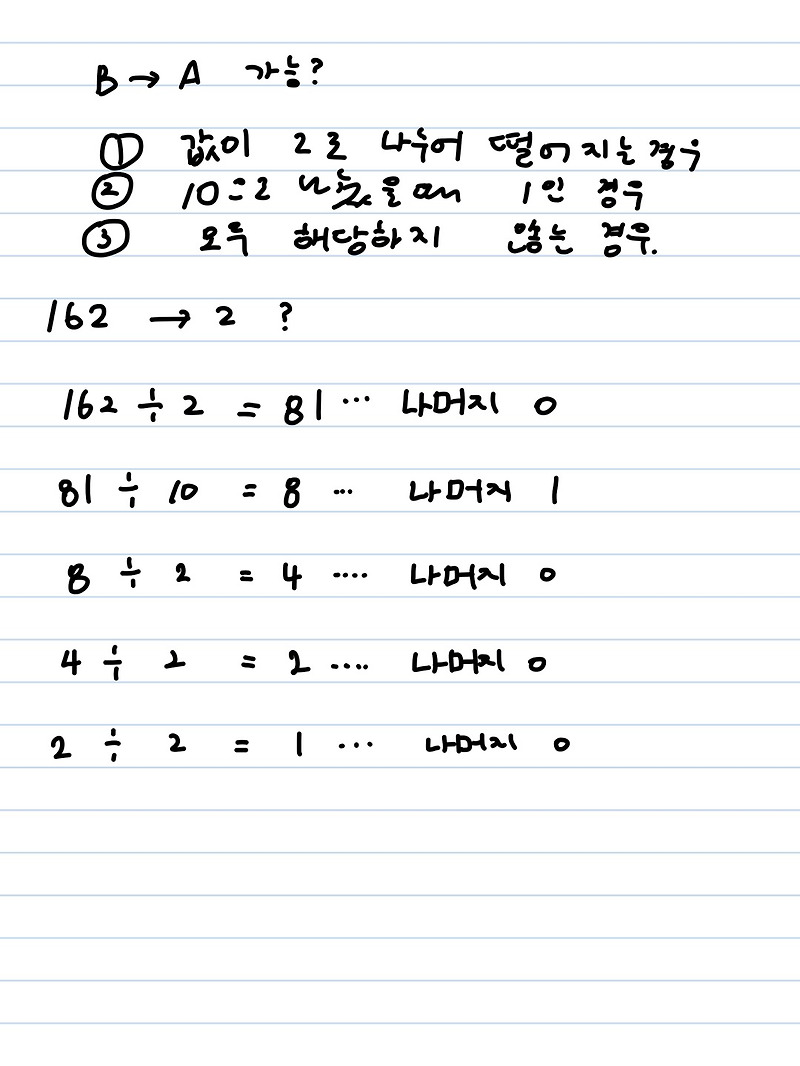 B → A 가능?
① 값이 2로 나누어 떨어지는 경우
② 10으로 나눴을때 1인 경우
③ 모두 해당하지 않는 경우.
162 → 2 ?
162 ÷ 2 = 81 ... 나머지 0
81 ÷ 10 = 8 ... 나머지 1
8 ÷ 2 = 4 .... 나머지 0
4 ÷ 2 = 2 .... 나머지 0
2 ÷ 2 = 1 ... 나머지 0